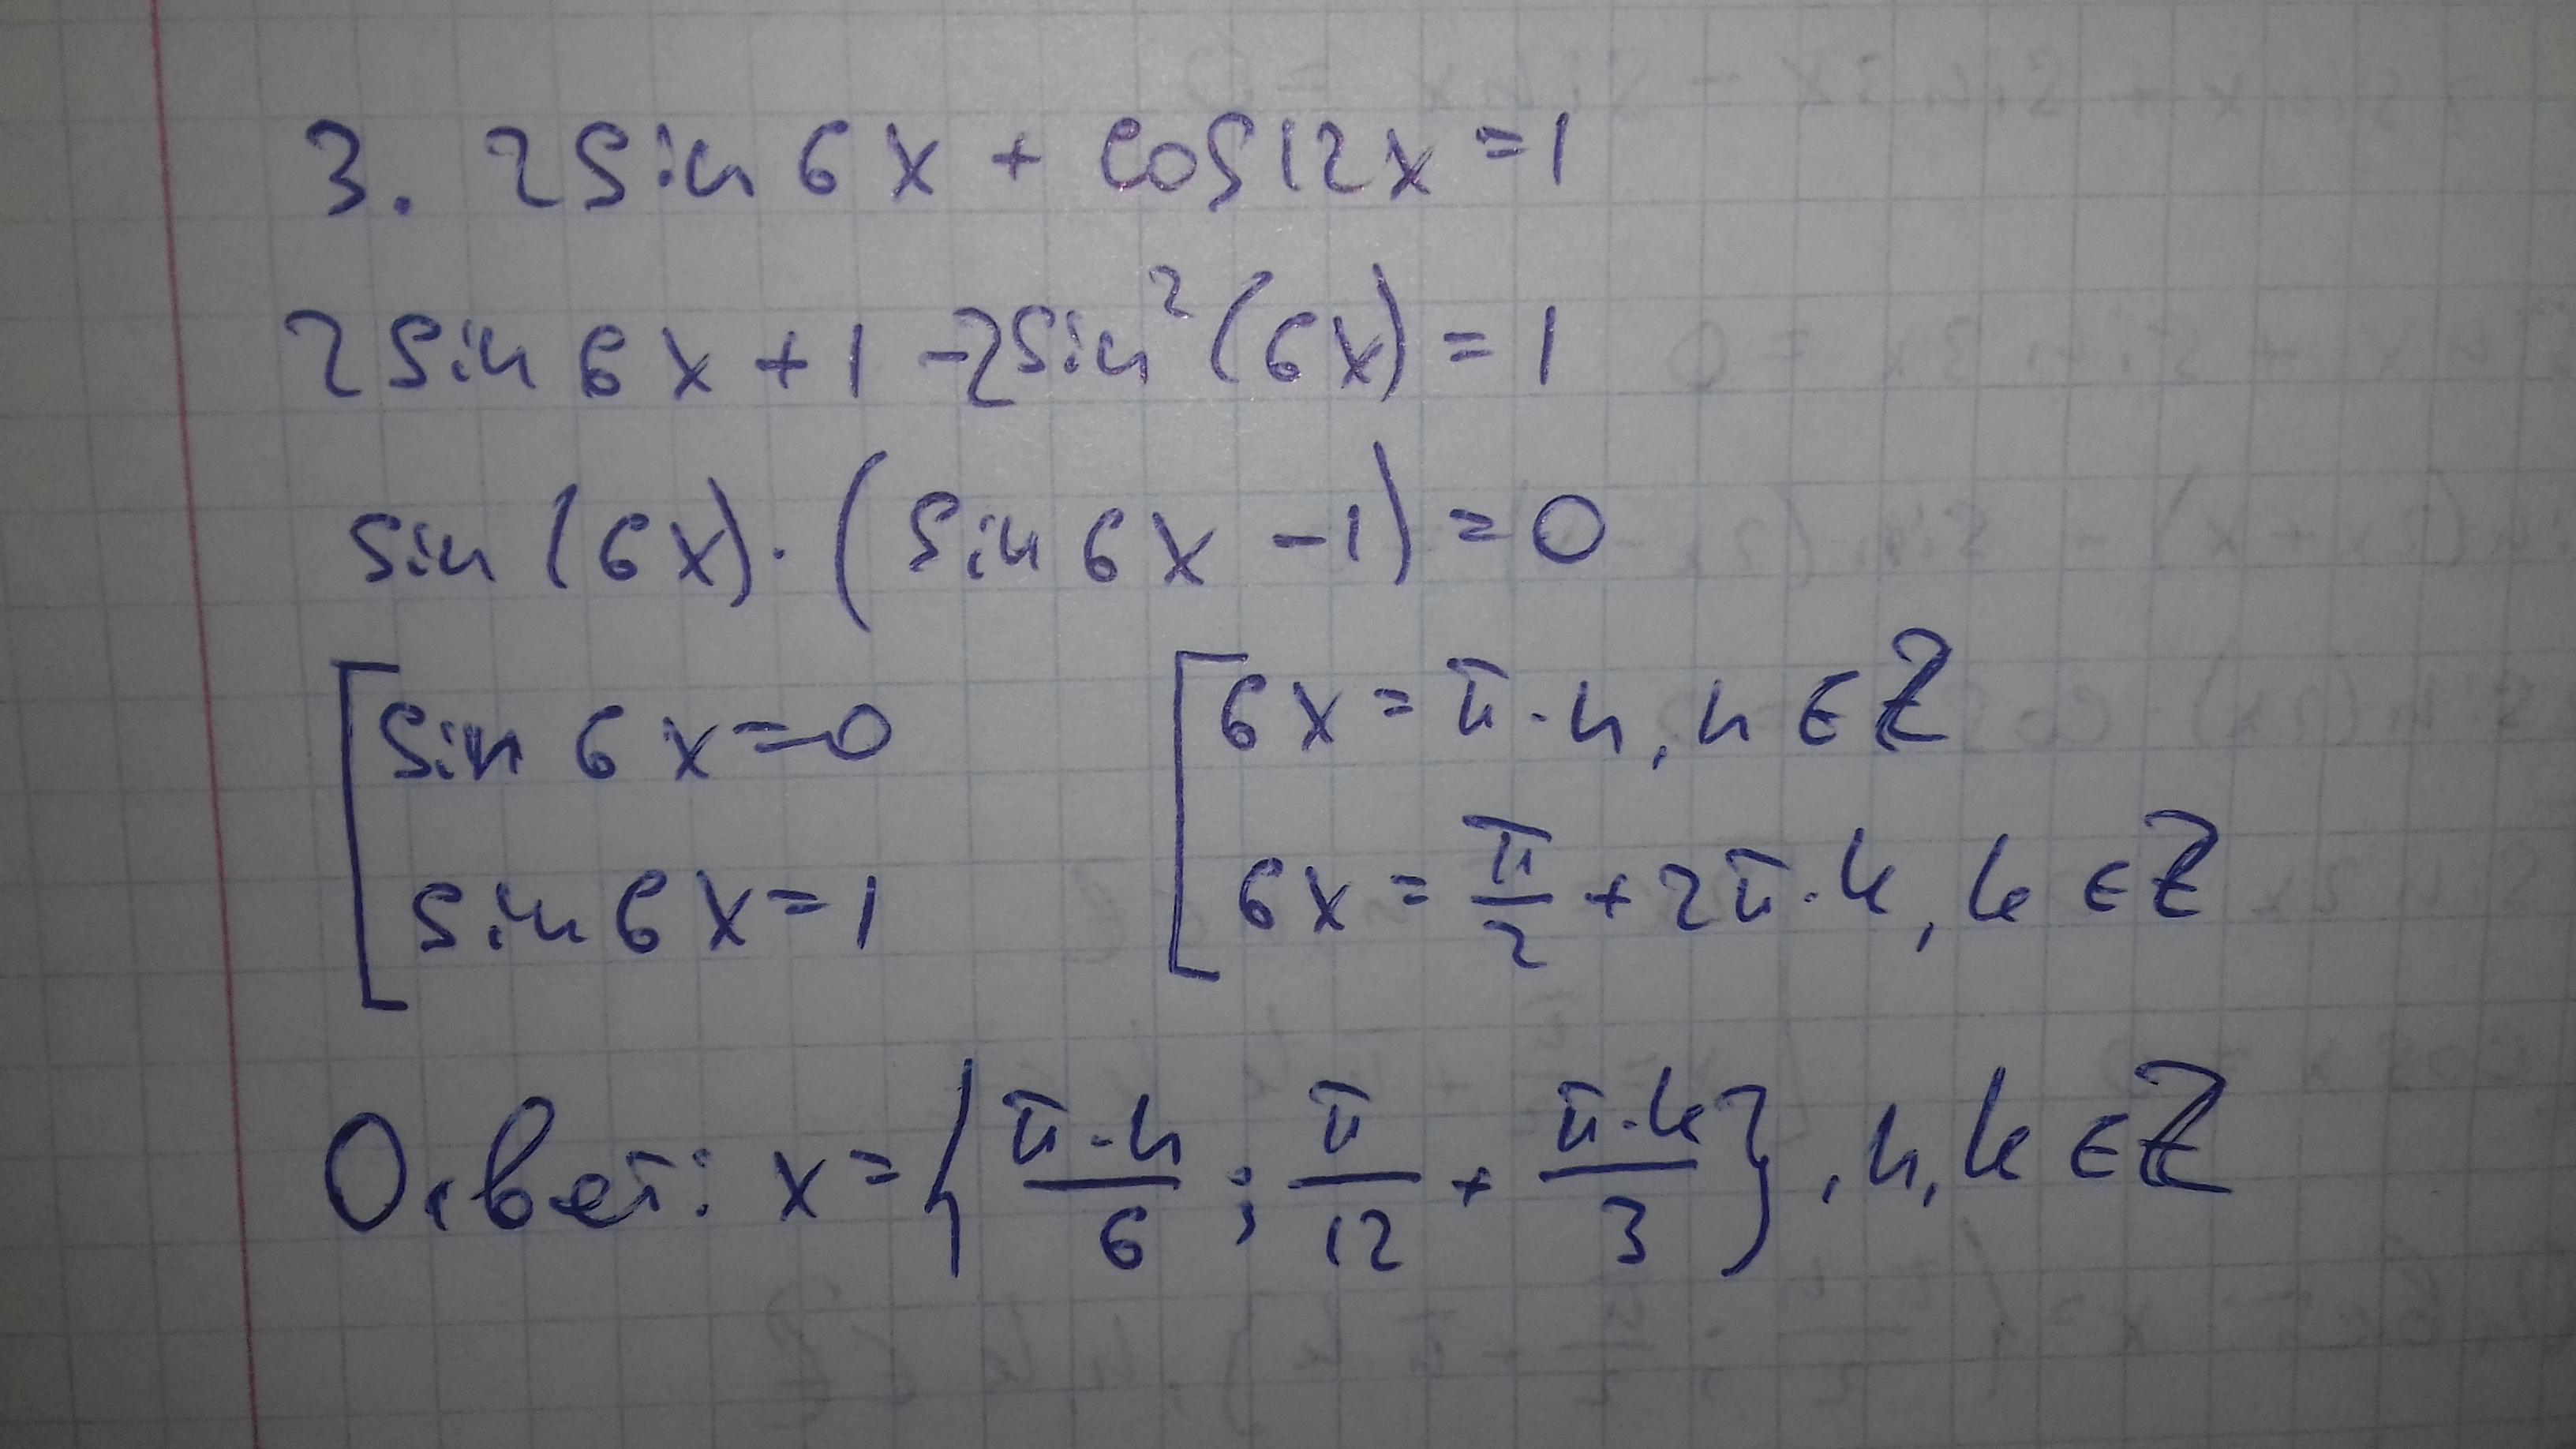 3. 2sin 6x + cos12x = 1
2 sin 6x + 1 - 2sin²(6x) = 1
sin (6x) · (sin 6x - 1) = 0
[ sin 6x = 0 [ 6x = π · n, n ∈ Z
sin 6x = 1 6x = π/2 + 2π · k, k ∈ Z
Ответ: x = { π · n / 6 ; π/12 + π · k / 3 }, n, k ∈ Z